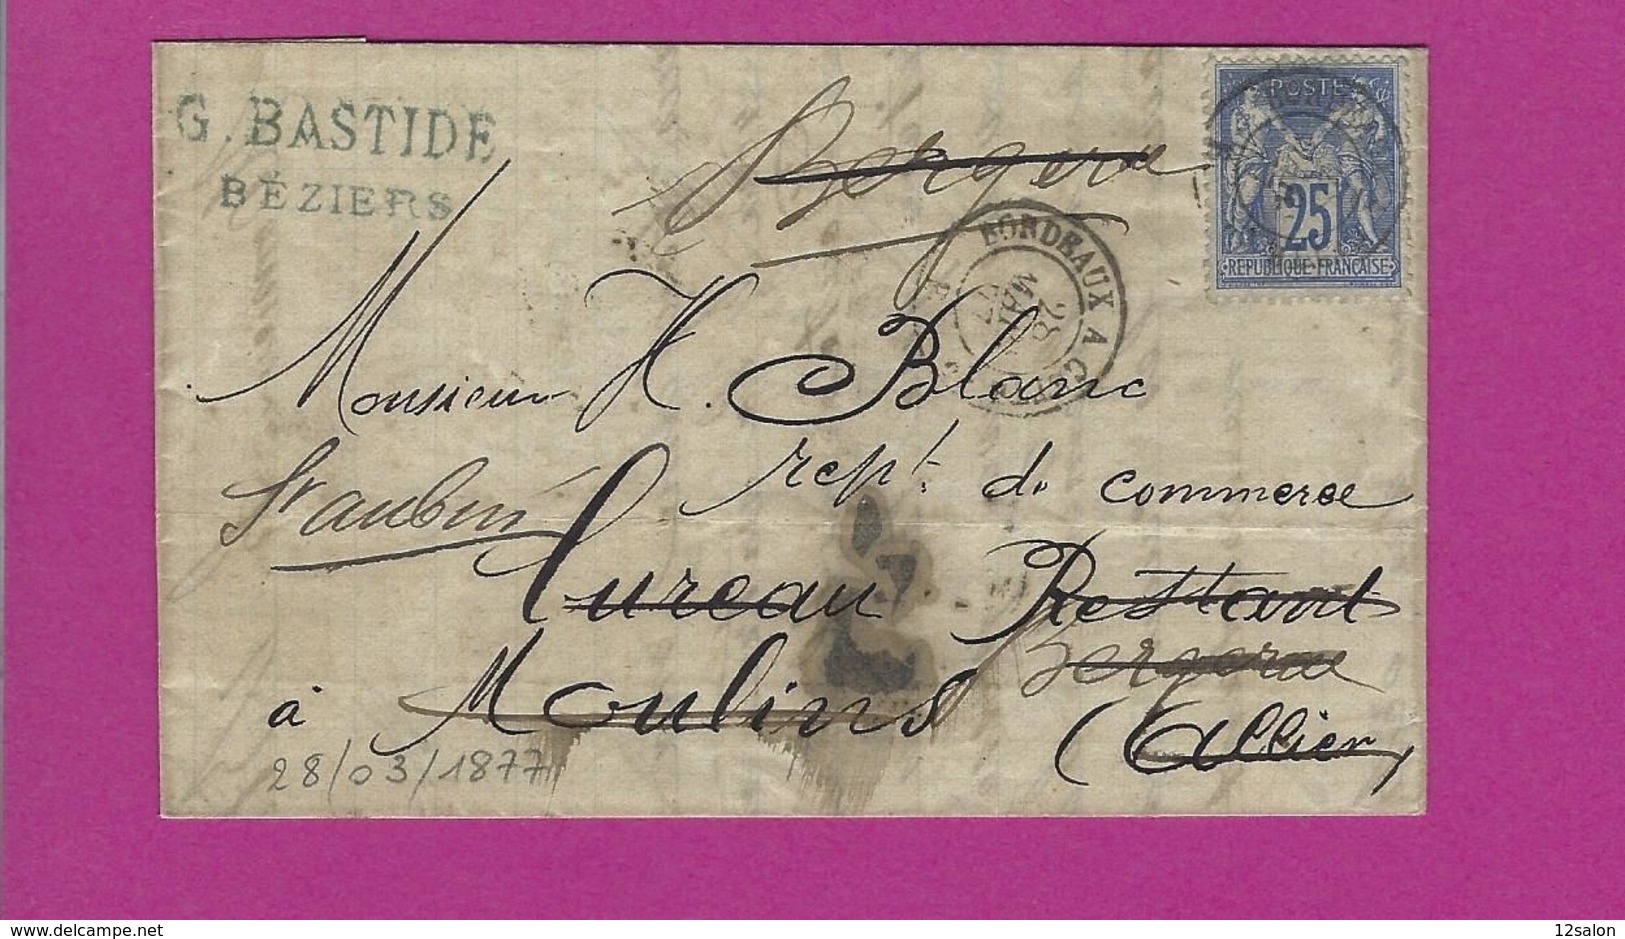 G. BASTIDE
BÉZIERS
POSTES
25
REPUBLIQUE FRANÇAISE
BORDEAUX A
28
MAI
Monsieur H. Blanc
rept. de commerce
St aubin
Bureau Restant
à Moulins
(Allier)
28/03/1877
www.delcampe.net
12salon